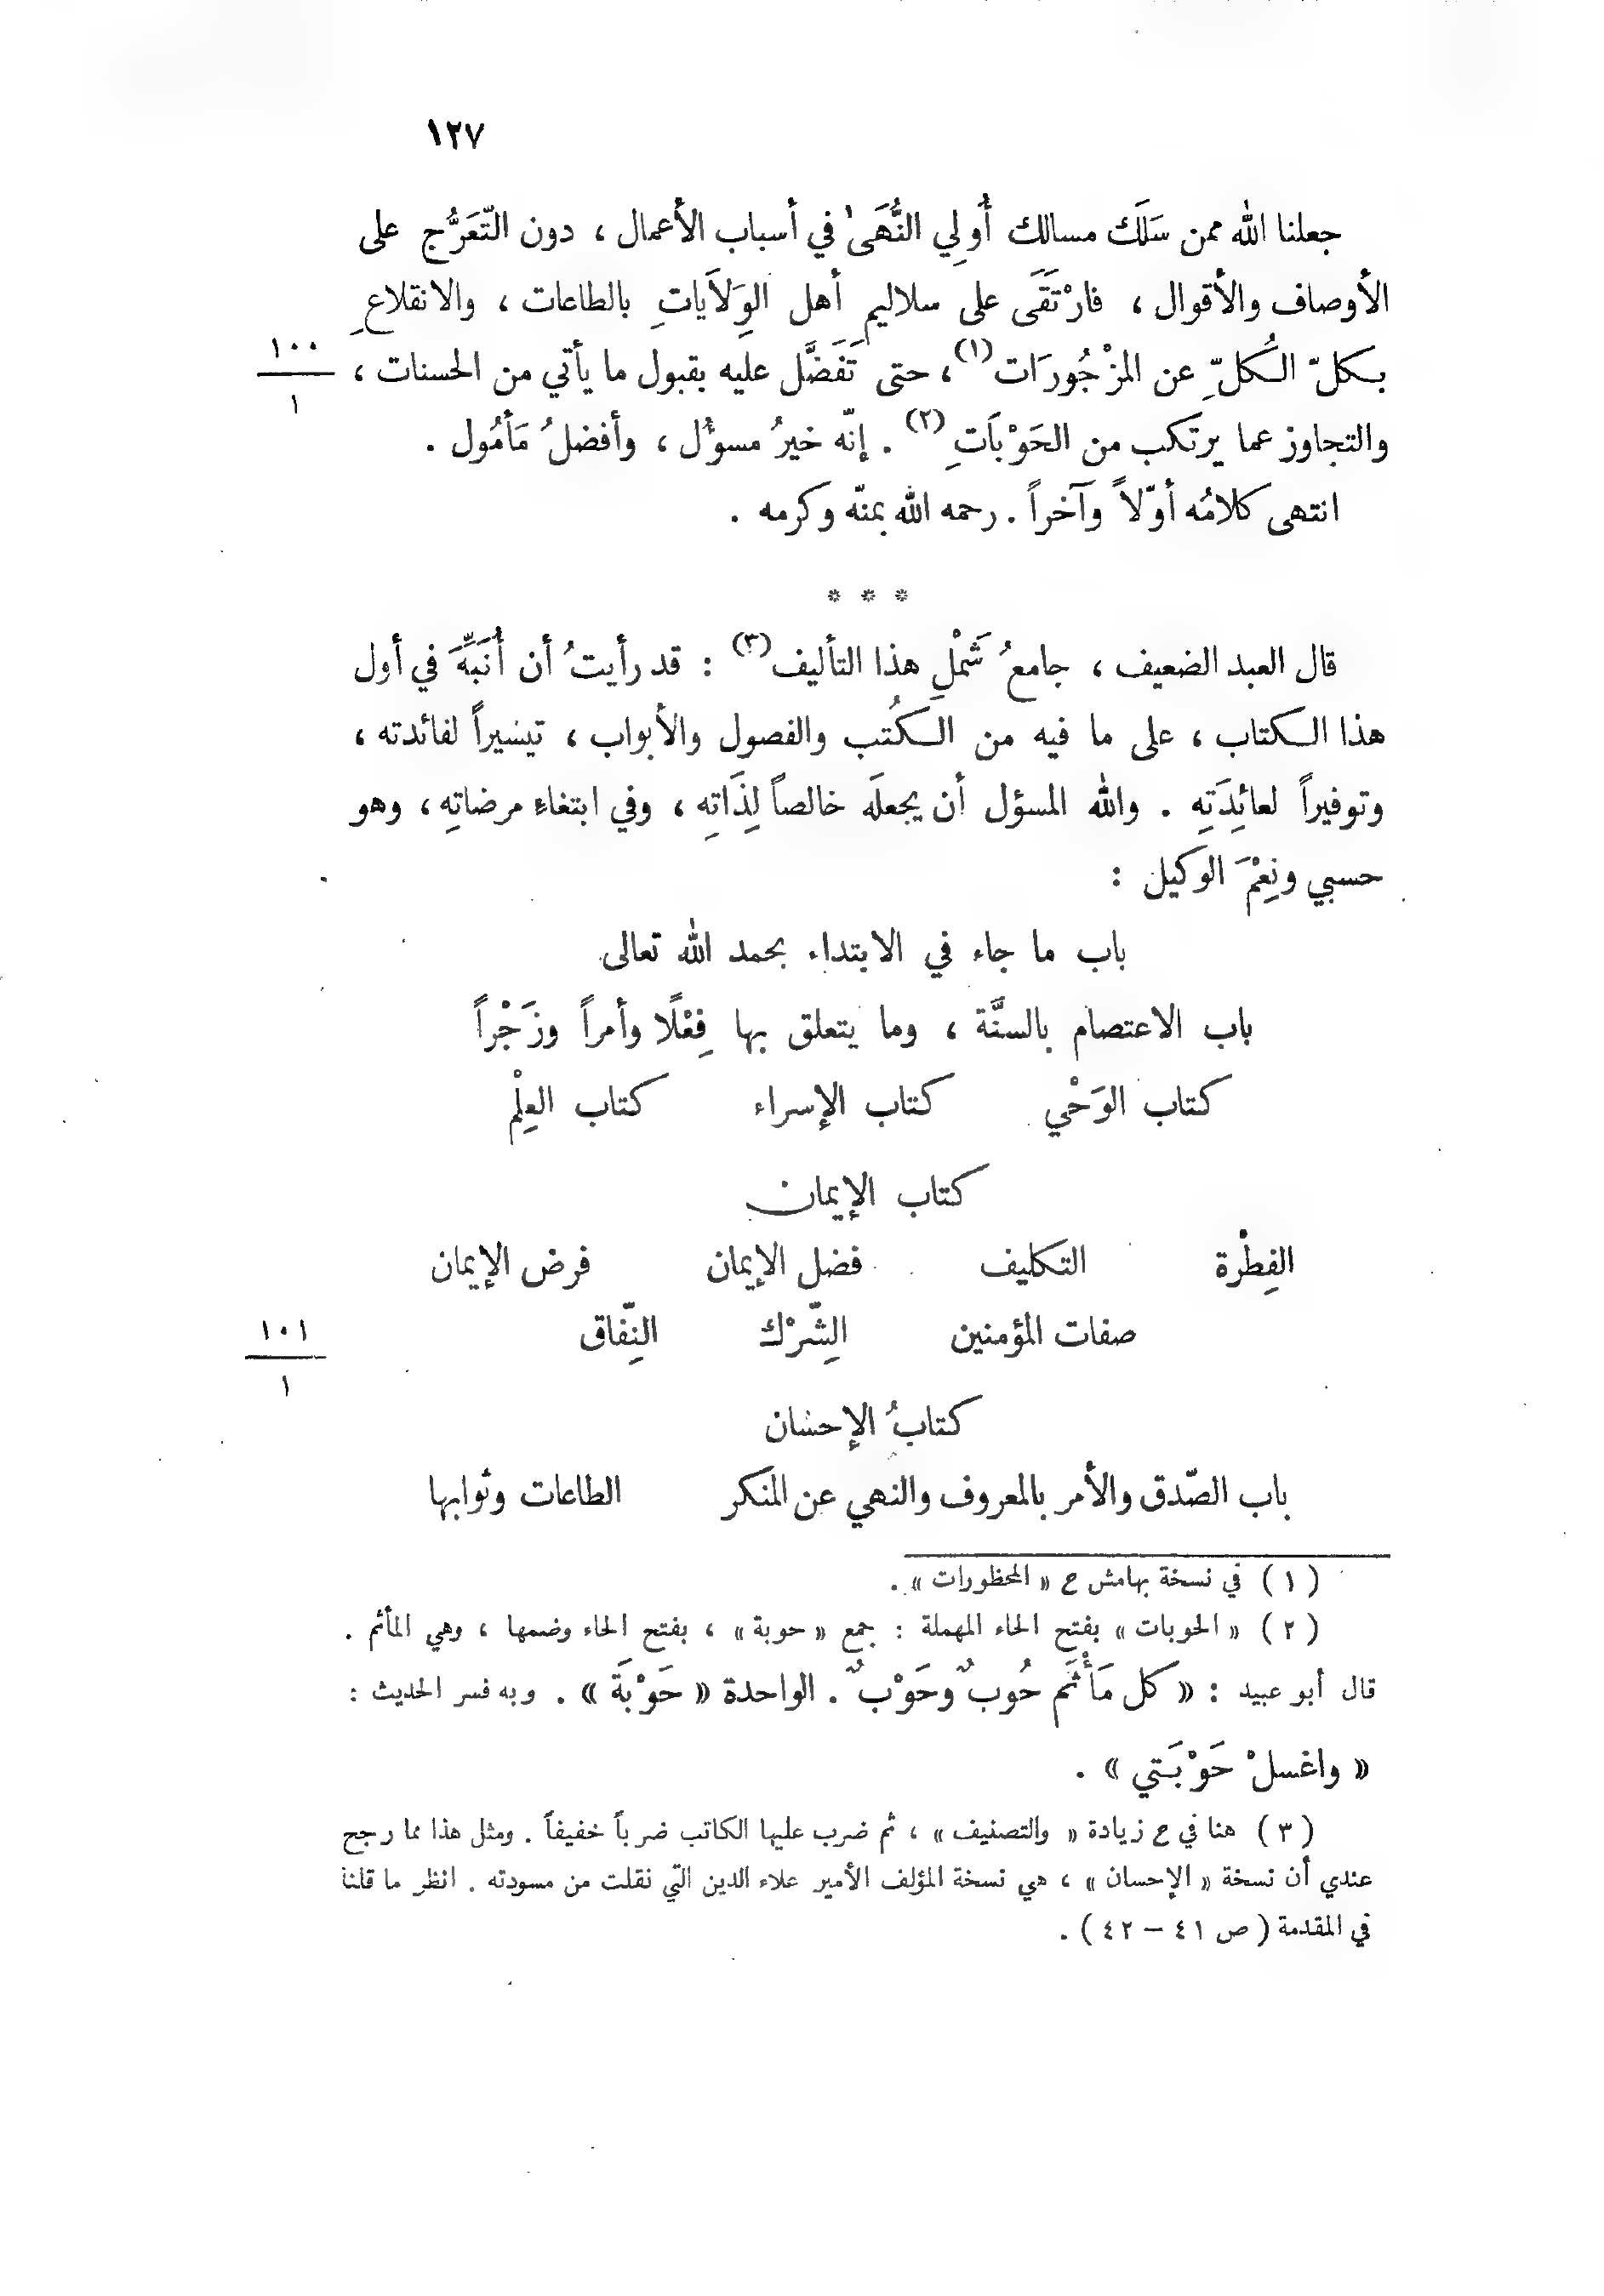 ١٢٧
جعلنا الله ممن سَلَكَ مسالك أُولِي النُّهَىٰ في أسباب الأعمال ، دون التّعَرُّج على
الأوصاف والأقوال ، فارْتَقَى على سلاليم أهل الوِلَايَاتِ بالطاعات ، والانقلاعِ
بكلّ الكُلِّ عن المزْجُورَات (١) ، حتى تَفَضَّل عليه بقبول ما يأتي من الحسنات ،
١٠٠
١
والتجاوز عما يرتكب من الحَوْبَاتِ (٢) . إنّه خيرُ مسؤل ، وأفضلُ مَأمُول .
انتهى كلامُه أوّلاً وآخراً . رحمه الله بمنّه وكرمه .
* * *
قال العبد الضعيف ، جامعُ شَمْلِ هذا التأليف (٣) : قد رأيتُ أن أُنَبِّهَ في أول
هذا الكتاب ، على ما فيه من الكُتب والفصول والأبواب ، تيسيراً لفائدته ،
وتوفيراً لعائِدَتِه . والله المسؤل أن يجعلَه خالصاً لِذَاتِه ، وفي ابتغاء مرضاتِه ، وهو
حسبي ونِعْمَ الوكيل :
باب ما جاء في الابتداء بحمد الله تعالى
باب الاعتصام بالسنَّة ، وما يتعلق بها فِعْلًا وأمراً وزَجْراً
كتاب الوَحْي كتاب الإسراء كتاب العِلْم
كتاب الإيمان
الفِطْرة التكليف فضل الإيمان فرض الإيمان
صفات المؤمنين الشِّرْك النِّفاق
١٠١
١
كتابُ الإحسان
باب الصّدق والأمر بالمعروف والنهي عن المنكر الطاعات وثوابها
( ١ ) في نسخة بهامش ح « المحظورات » .
( ٢ ) « الحوبات » بفتح الحاء المهملة : جمع « حوبة » ، بفتح الحاء وضمها ، وهي المأثم .
قال أبو عبيد : « كل مَأْثَم حُوبٌ وحَوْبٌ . الواحدة « حَوْبَة » . وبه فسر الحديث :
« واغسلْ حَوْبَتي » .
( ٣ ) هنا في ح زيادة « والتصنيف » ، ثم ضرب عليها الكاتب ضرباً خفيفاً . ومثل هذا مما رجح
عندي أن نسخة « الإحسان » ، هي نسخة المؤلف الأمير علاء الدين التي نقلت من مسودته . انظر ما قلنا
في المقدمة ( ص ٤١ – ٤٢ ) .